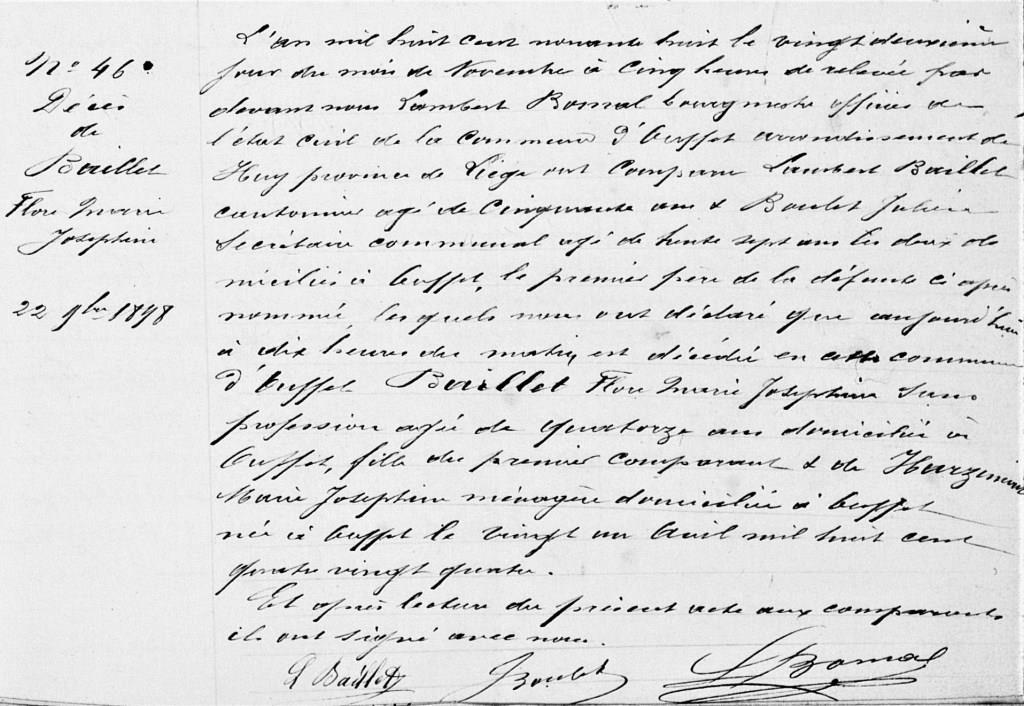 N° 46
Décès
de
Baillet
Flore Marie
Joséphine
22 9bre 1898
L'an mil huit cent nonante huit le vingt deuxième
jour du mois de Novembre à cinq heures de relevée par
devant nous Lambert Bomal bourgmestre officier de
l'état civil de la commune d'Ouffet arrondissement de
Huy province de Liège ont comparu Lambert Baillet
cantonnier agé de cinquante ans & Boulet Julien
secrétaire communal agé de trente sept ans les deux do
miciliés à Ouffet, le premier père de la défunte ci après
nommée, lesquels nous ont déclaré que aujourd'hui
à dix heures du matin, est décédée en cette commune
d'Ouffet Baillet Flore Marie Joséphine sans
profession agée de quatorze ans domiciliée à
Ouffet, fille du premier comparant & de
Marie Joséphine ménagère domiciliée à Ouffet
née à Ouffet le vingt un Avril mil huit cent
quatre vingt quatre.
Et après lecture du présent acte aux comparants
ils ont signé avec nous.
L Baillet JBoulet L Bomal